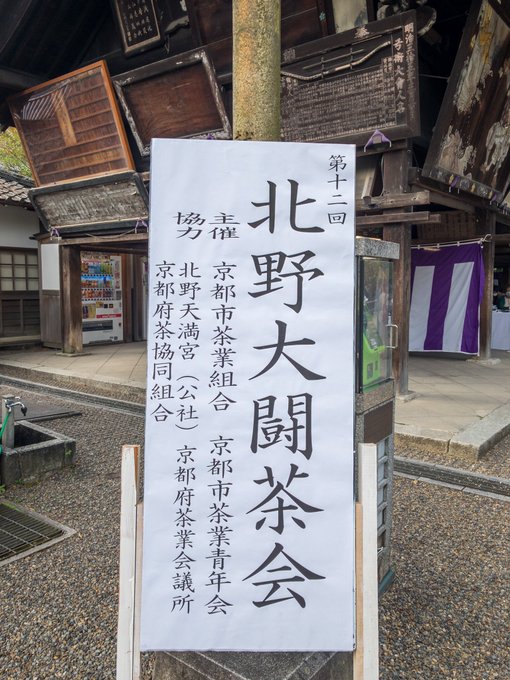 第十二回
北野大闘茶会
主催 京都市茶業組合 京都市茶業青年会
協力 北野天満宮（公社）京都府茶業会議所
京都府茶協同組合